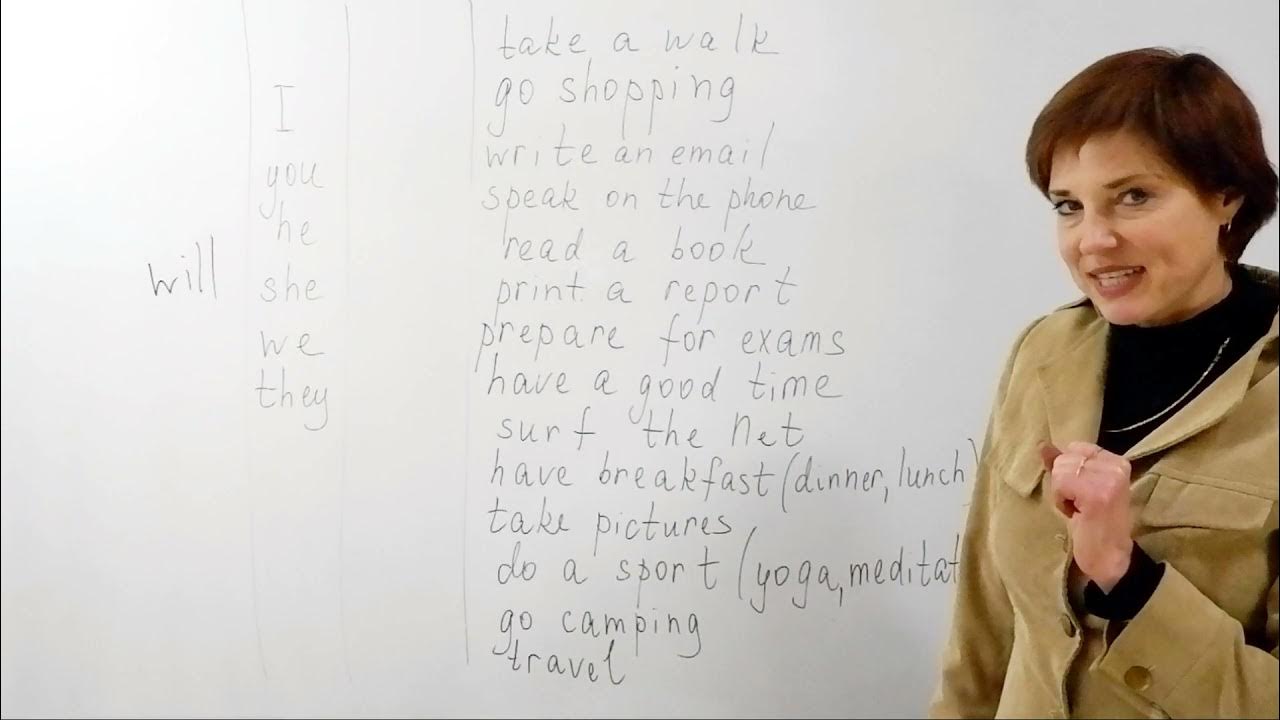 take a walk
I go shopping
you write an email
speak on the phone
he read a book
will she print a report
we prepare for exams
they have a good time
surf the Net
have breakfast (dinner, lunch)
take pictures
do a sport (yoga, meditat
go camping
travel